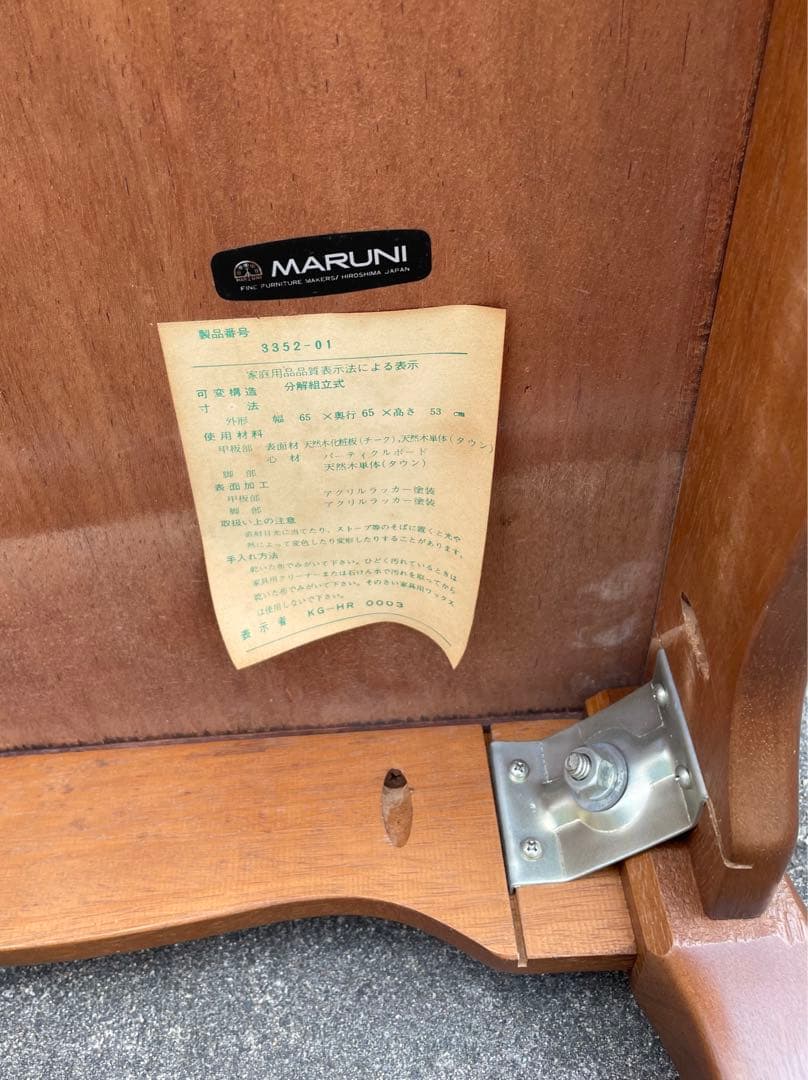 MARUNI
FINE FURNITURE MAKERS/ HIROSHIMA JAPAN
製品番号
3352-01
家庭用品品質表示法による表示
可変構造 分解組立式
寸法
外形 幅 65 ×奥行 65 ×高さ 53 cm
使用材料
甲板部 表面材 天然木化粧板(チーク)、天然木単体(タウン)
心材 パーティクルボード
脚部 天然木単体(タウン)
表面加工
甲板部 アクリルラッカー塗装
脚部 アクリルラッカー塗装
取扱い上の注意
直射日光に当てたり、ストーブ等のそばに置くと光や
熱によって変色したり変形したりすることがあります。
手入れ方法
乾いた布でみがいて下さい。ひどく汚れているときは
家具用クリーナーまたは石けん水で汚れを取ってから
乾いた布でみがいて下さい。そのさい家具用ワックス
は使用しないで下さい。
表示者 KG-HR 0003